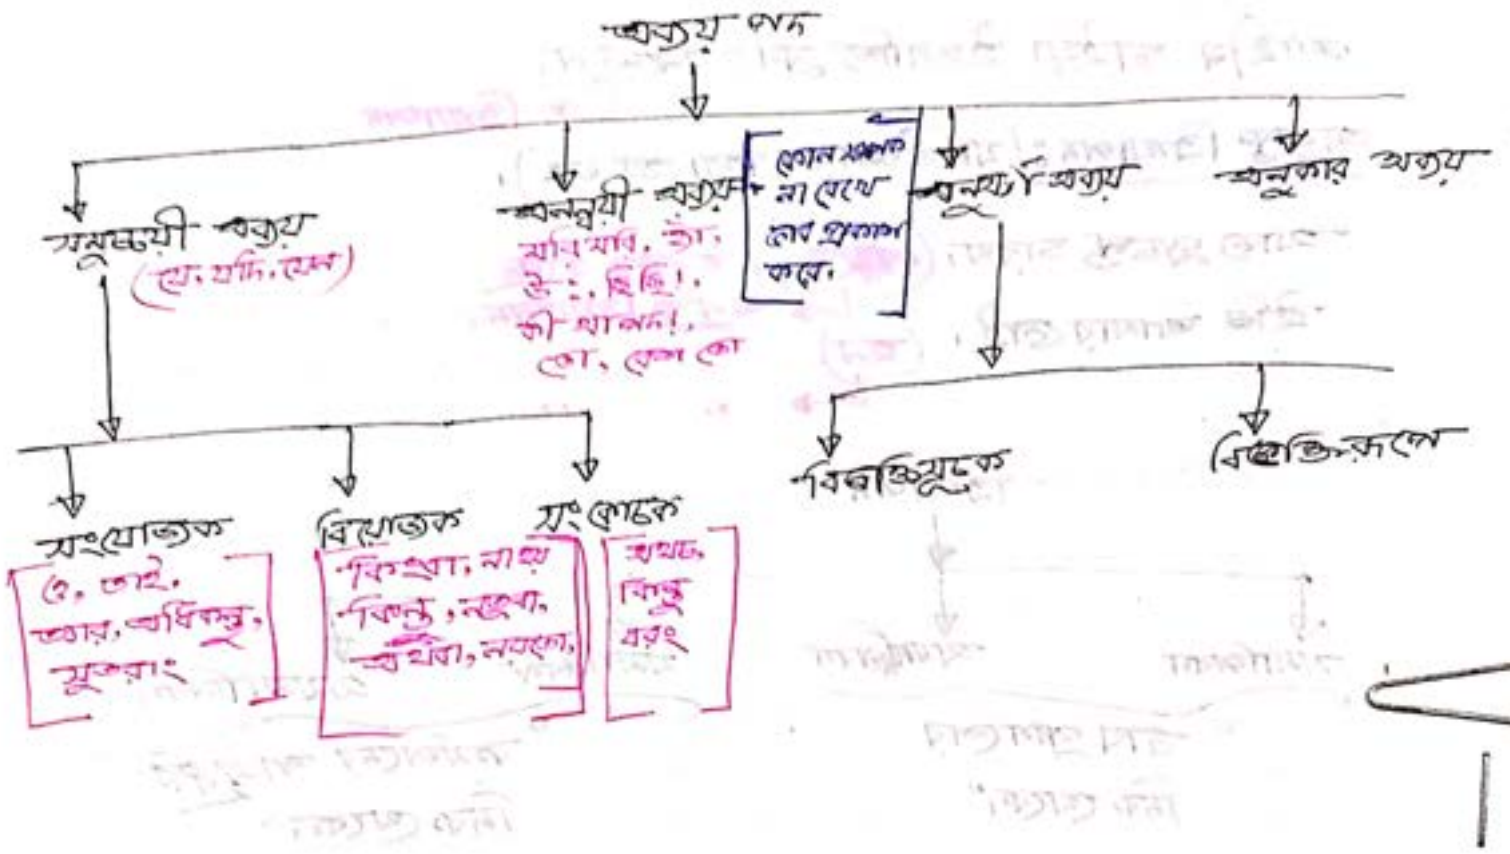 অব্যয় পদ
সমুচ্চয়ী অব্যয়
(যে, যদি, যেন)
অনন্বয়ী অব্যয়
মরি মরি, হ্যাঁ,
উঃ, ছিছি!,
কী আপদ!,
তো, বেশ তো
কোন সম্পর্ক
না রেখে
ভাব প্রকাশ
করে.
অনুসর্গ অব্যয়
অনুকার অব্যয়
সংযোজক
ও, তাই,
আর, অধিকন্তু,
সুতরাং
বিয়োজক
কিংবা, না হয়
কিন্তু, নতুবা,
অথবা, নয়তো,
সংকোচক
অথচ,
কিন্তু
বরং
বিভক্তিসূচক
বিভক্তিরূপে